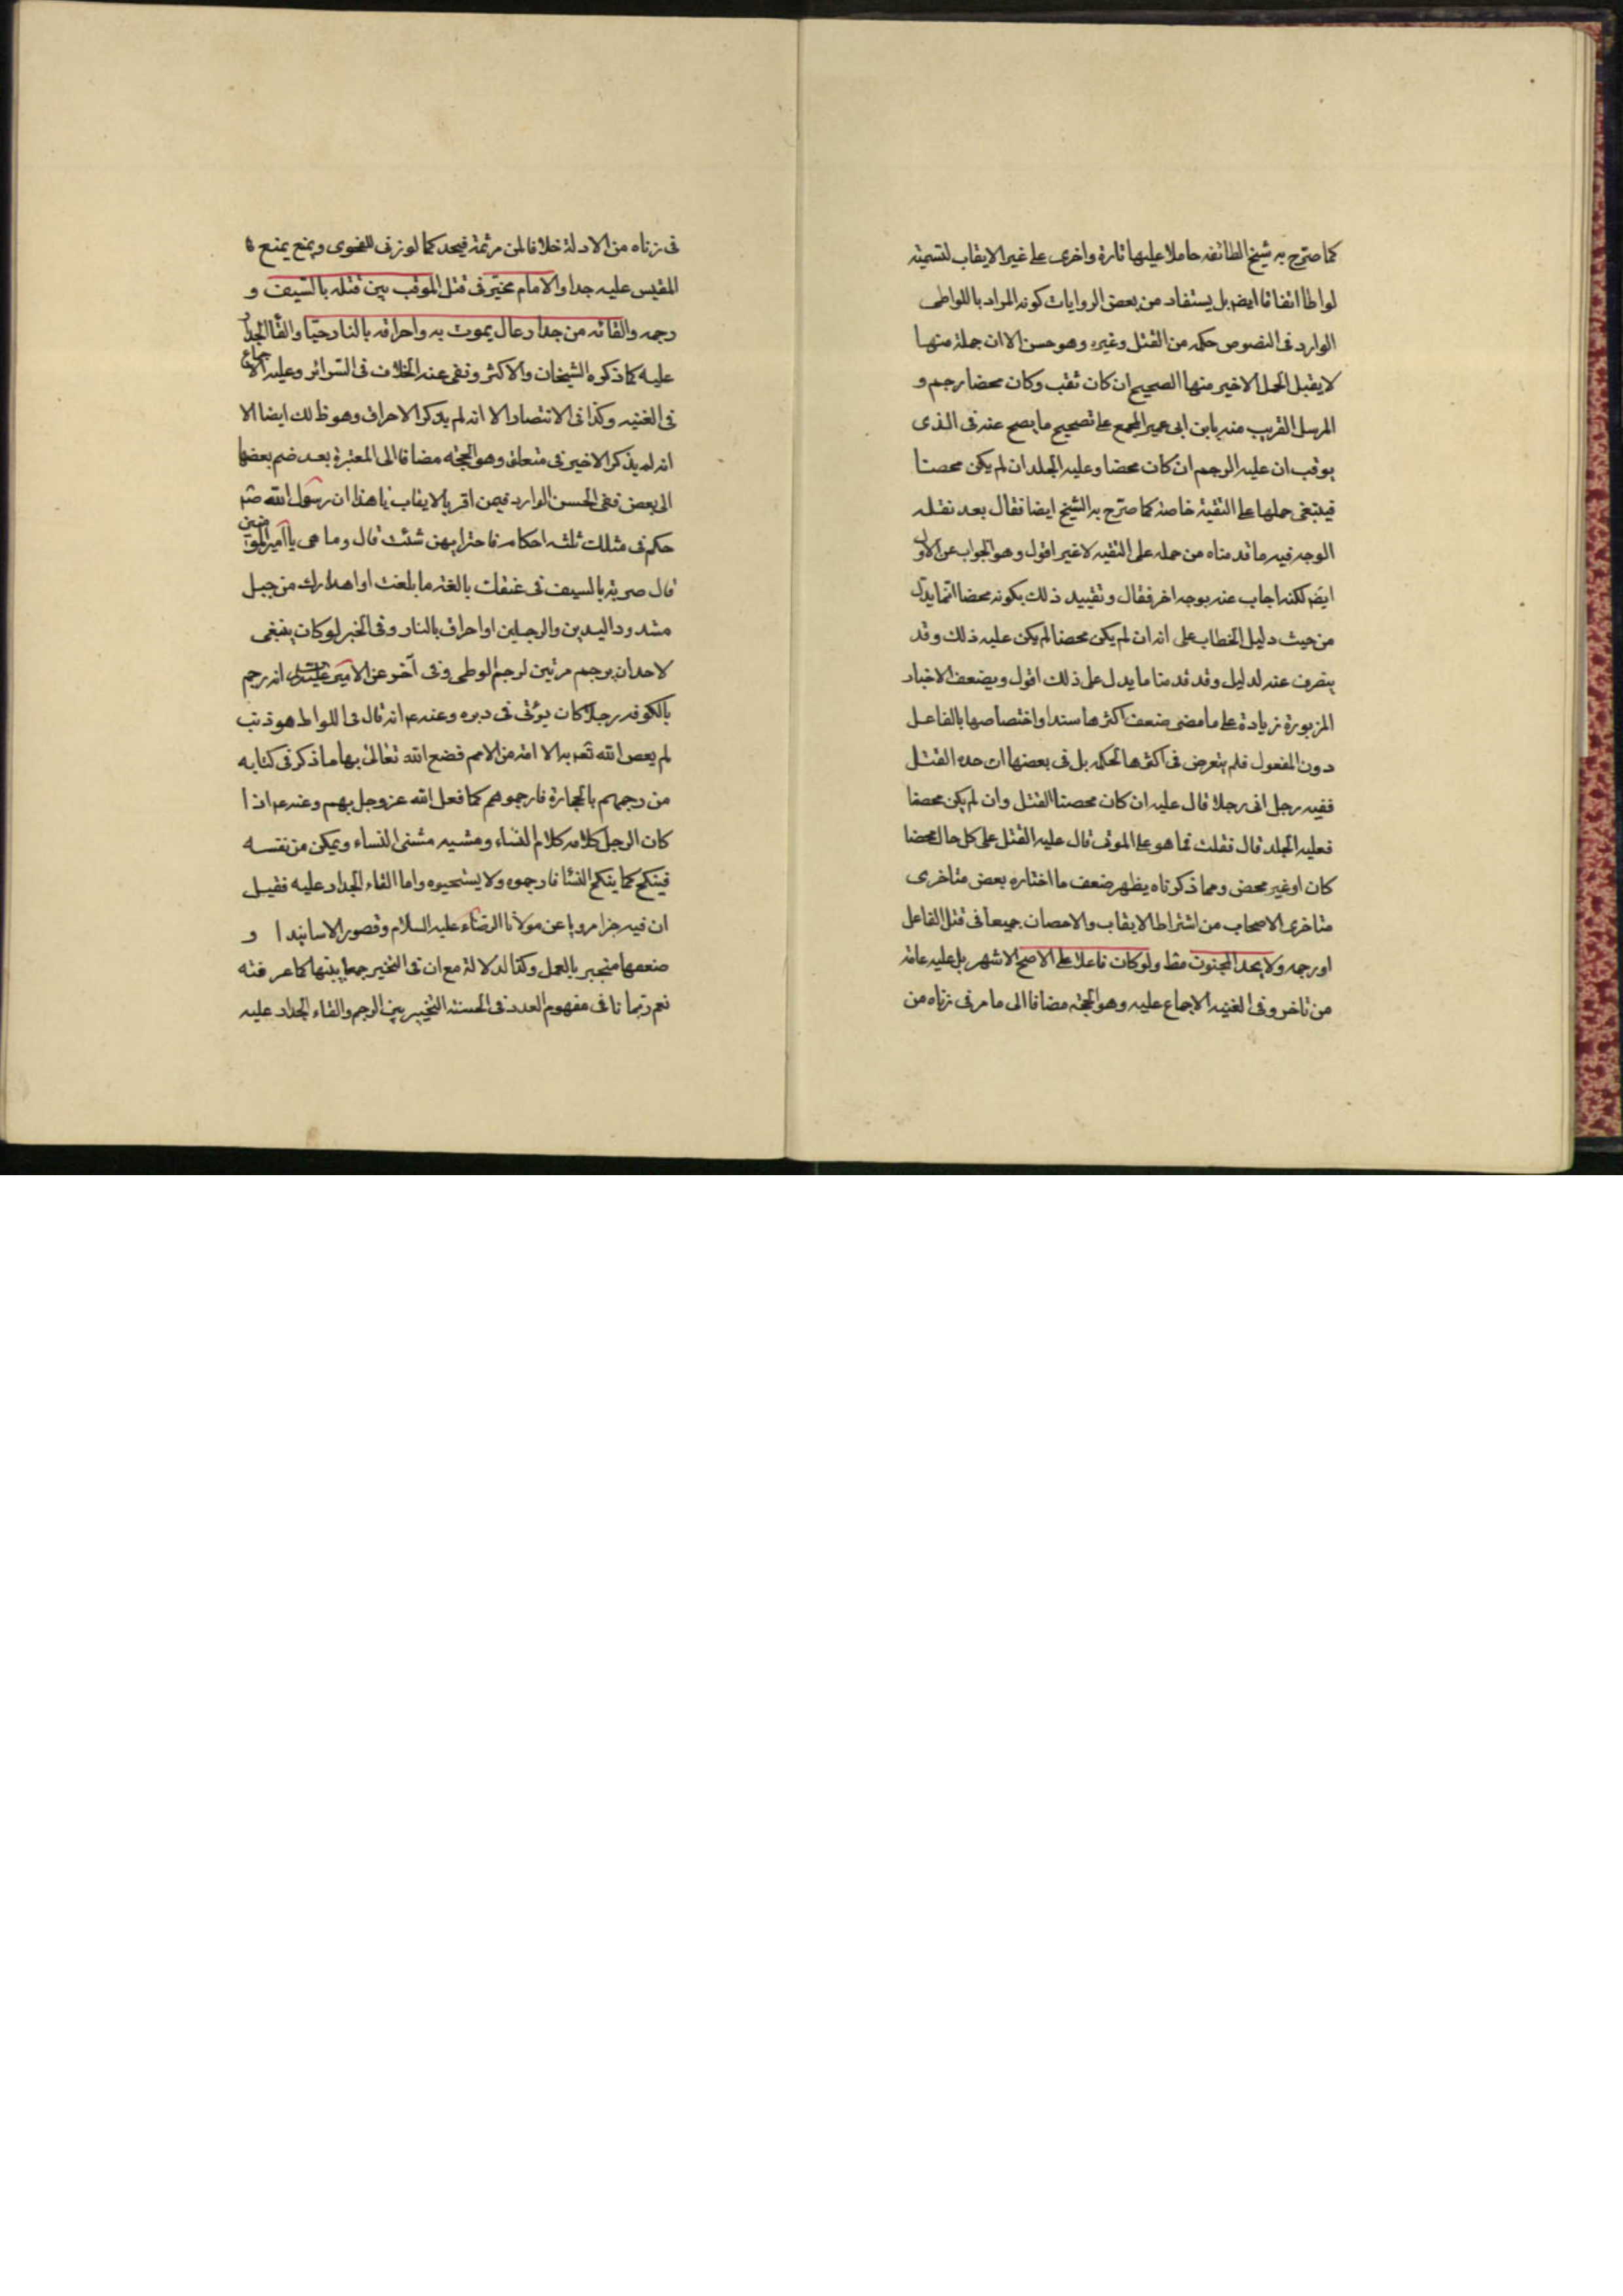 كما صرّح به شيخ الطائفه حاملا عليها تارة واخرى على غير الايقاب لتسميته
لواطا اتفاقا ايضا بل يستفاد من بعض الروايات كونه المراد باللواطى
الوارد فى النصوص حكمه من القتل وغيره وهو حسن الا ان جملة منها
لا يقبل الحمل الاخير منها الصحيح ان كان ثقب وكان محصنا رجم و
المرسل القريب منه بابن ابى عمير المجمع على تصحيح ما يصح عنه فى الذى
يوقب ان عليه الرجم ان كان محصنا وعليه الجلد ان لم يكن محصنا
فينبغى حملها على التقية خاصة كما صرّح به الشيخ ايضا فقال بعد نقله
الوجه فيه ما قدمناه من حمله على التقيه لا غير اقول وهو الجواب عن الاول
ايضا لكنه اجاب عنه بوجه اخر فقال وتقييد ذلك بكونه محصنا انما يدل
من حيث دليل الخطاب على انه ان لم يكن محصنا لم يكن عليه ذلك وقد
ينصرف عنه لدليل وقد قدمنا ما يدل على ذلك اقول ويضعف الاخبار
المزبورة زيادة على ما مضى ضعف اكثرها سندا واختصاصها بالفاعل
دون المفعول فلم يتعرض فى اكثرها لحكمه بل فى بعضها ان حده القتل
ففيه رجل اتى رجلا قال عليه ان كان محصنا القتل وان لم يكن محصنا
فعليه الجلد قال فقلت فما هو على الموتى قال عليه القتل على كل حال محصنا
كان او غير محصن ومما ذكرناه يظهر ضعف ما اختاره بعض متاخرى
متاخرى الاصحاب من اشتراط الايقاب والاحصان جميعا فى قتل الفاعل
او رجمه ولا يحد المجنون مط ولو كان فاعلا على الاصح الاشهر بل عليه عامة
من تاخر وفى الغنيه الاجماع عليه وهو الحجة مضافا الى ما مر فى زناه من
فى زناه من الادلة خلافا لمن مر ثمة فيحد كما لو زنى للفحوى ويمنع بمنع
المقيس عليه جدا والامام مخيّر فى قتل الموقب بين قتله بالسّيف و
رجمه والقائه من جدار عال يموت به واحراقه بالنار حيّا والقاء الجدار
عليه كما ذكره الشيخان والاكثر ونفى عنه الخلاف فى السّرائر وعليه الاجماع
فى الغنيه وكذا فى الانتصار الا انه لم يذكر الاحراق وهو ظ لك ايضا الا
انه لم يذكر الاخير فى متعلقه وهو الحجّة مضافا الى المعتبرة بعد ضم بعضها
الى بعض ففى الحسن الوارد فيمن اقر بالايقاب يا هذا ان رسول الله ص
حكم فى مثلك ثلثه احكام فاختر ايهن شئت قال وما هى يا امير المؤمنين
قال ضربة بالسيف فى عنقك بالغة ما بلغت او اهدارك من جبل
مشدود اليدين والرجلين او احراق بالنار وفى الخبر لو كان ينبغى
لاحد ان يرجم مرتين لرجم اللوطى وفى آخر عن الامير انه رجم
بالكوفه رجلا كان يؤتى فى دبره وعنه ع انه قال فى اللواط هو ذنب
لم يعص الله تع به الا امة من الامم فصنع الله تعالى بها ما ذكر فى كتابه
من رجمهم بالحجارة فارجموهم كما فعل الله عز وجل بهم وعنه ع اذا
كان الرجل كلامه كلام النساء ومشيه مشى النساء ويمكن من نفسه
فينكح كما ينكح النساء فارجموه ولا يستحيوه واما القاء الجدار عليه فقيل
ان فيه خبرا مرويا عن مولانا الرضا عليه السلام وقصور الاسانيد او
ضعفها منجبر بالعمل وكذا الدلالة مع ان فى التخيير جمعا بينها كما عرفته
نعم ربما نافى مفهوم العدد فى الحسنه التخيير بين الرجم والقاء الجدار عليه